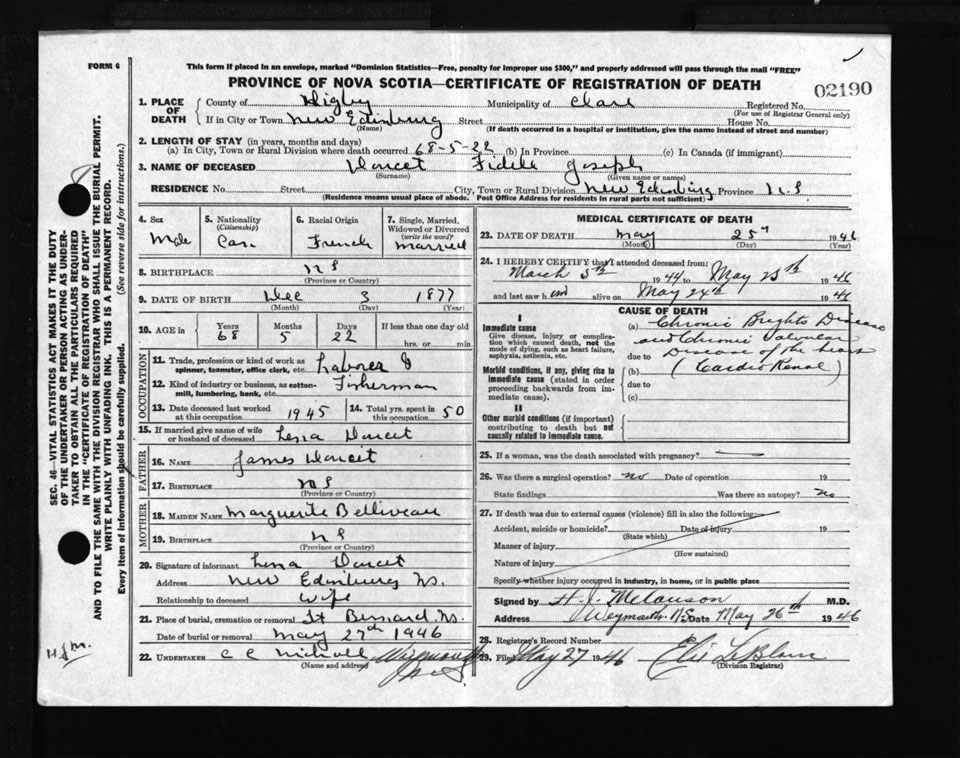 FORM 6
This form if placed in an envelope, marked "Dominion Statistics—Free, penalty for improper use $300," and properly addressed will pass through the mail "FREE"
PROVINCE OF NOVA SCOTIA—CERTIFICATE OF REGISTRATION OF DEATH
02190
1. PLACE OF DEATH
County of Digby Municipality of Clare Registered No.
(For use of Registrar General only)
If in City or Town New Edinburg Street House No.
(Name) (If death occurred in a hospital or institution, give the name instead of street and number)
2. LENGTH OF STAY (in years, months and days)
(a) In City, Town or Rural Division where death occurred 68-5-22 (b) In Province (c) In Canada (if immigrant)
3. NAME OF DECEASED Doucet Fidele Joseph
(Surname) (Given name or names)
RESIDENCE No. Street City, Town or Rural Division New Edinburg Province N.S
(Residence means usual place of abode. Post Office Address for residents in rural parts not sufficient)
4. Sex
Male
5. Nationality
(Citizenship)
Can.
6. Racial Origin
French
7. Single, Married, Widowed or Divorced
(write the word)
married
8. BIRTHPLACE N S
(Province or Country)
9. DATE OF BIRTH Dec 3 1877
(Month) (Day) (Year)
10. AGE in
Years Months Days If less than one day old
68 5 22 hrs. or min.
OCCUPATION
11. Trade, profession or kind of work as spinner, teamster, office clerk, etc. Laborer &
12. Kind of industry or business, as cotton-mill, lumbering, bank, etc. Fisherman
13. Date deceased last worked at this occupation 1945
14. Total yrs. spent in this occupation 50
15. If married give name of wife or husband of deceased Lena Doucet
FATHER
16. NAME James Doucet
17. BIRTHPLACE N S
(Province or Country)
MOTHER
18. MAIDEN NAME Marguerite Belliveau
19. BIRTHPLACE N S
(Province or Country)
20. Signature of informant Lena Doucet
Address New Edinburg Ns.
Relationship to deceased wife
21. Place of burial, cremation or removal St Bernard Ns.
Date of burial or removal May 27th 1946
22. UNDERTAKER C C
(Name and address)
Weymouth
N.S.
MEDICAL CERTIFICATE OF DEATH
23. DATE OF DEATH May 25th 1946
(Month) (Day) (Year)
24. I HEREBY CERTIFY that I attended deceased from:
March 5th 1944 to May 25th 1946
and last saw him alive on May 24th 1946
CAUSE OF DEATH
I
Immediate cause
Give disease, injury or complication which caused death, not the mode of dying, such as heart failure, asphyxia, asthenia, etc.
(a) Chronic Brights Disease
and Chronic Valvular
due to Disease of the heart
Morbid conditions, if any, giving rise to immediate cause (stated in order proceeding backwards from immediate cause).
(b) (Cardio Renal)
due to
(c)
II
Other morbid conditions (if important) contributing to death but not causally related to immediate cause.
25. If a woman, was the death associated with pregnancy?
26. Was there a surgical operation? no Date of operation 19
State findings Was there an autopsy? no
27. If death was due to external causes (violence) fill in also the following:
Accident, suicide or homicide? Date of injury 19
(State which)
Manner of injury
(How sustained)
Nature of injury
Specify whether injury occurred in industry, in home, or in public place
Signed by H. J. Melanson M.D.
Weymouth N.S. Date May 26th 1946
28. Registrar's Record Number
29. Filed May 27 1946 Elie LeBlanc
(Division Registrar)
SEC. 46—VITAL STATISTICS ACT MAKES IT THE DUTY OF THE UNDERTAKER OR PERSON ACTING AS UNDERTAKER TO OBTAIN ALL THE PARTICULARS REQUIRED IN THE "CERTIFICATE OF REGISTRATION OF DEATH" AND TO FILE THE SAME WITH THE DIVISION REGISTRAR WHO SHALL ISSUE THE BURIAL PERMIT.
WRITE PLAINLY WITH UNFADING INK. THIS IS A PERMANENT RECORD.
Every item of information should be carefully supplied. (See reverse side for instructions.)